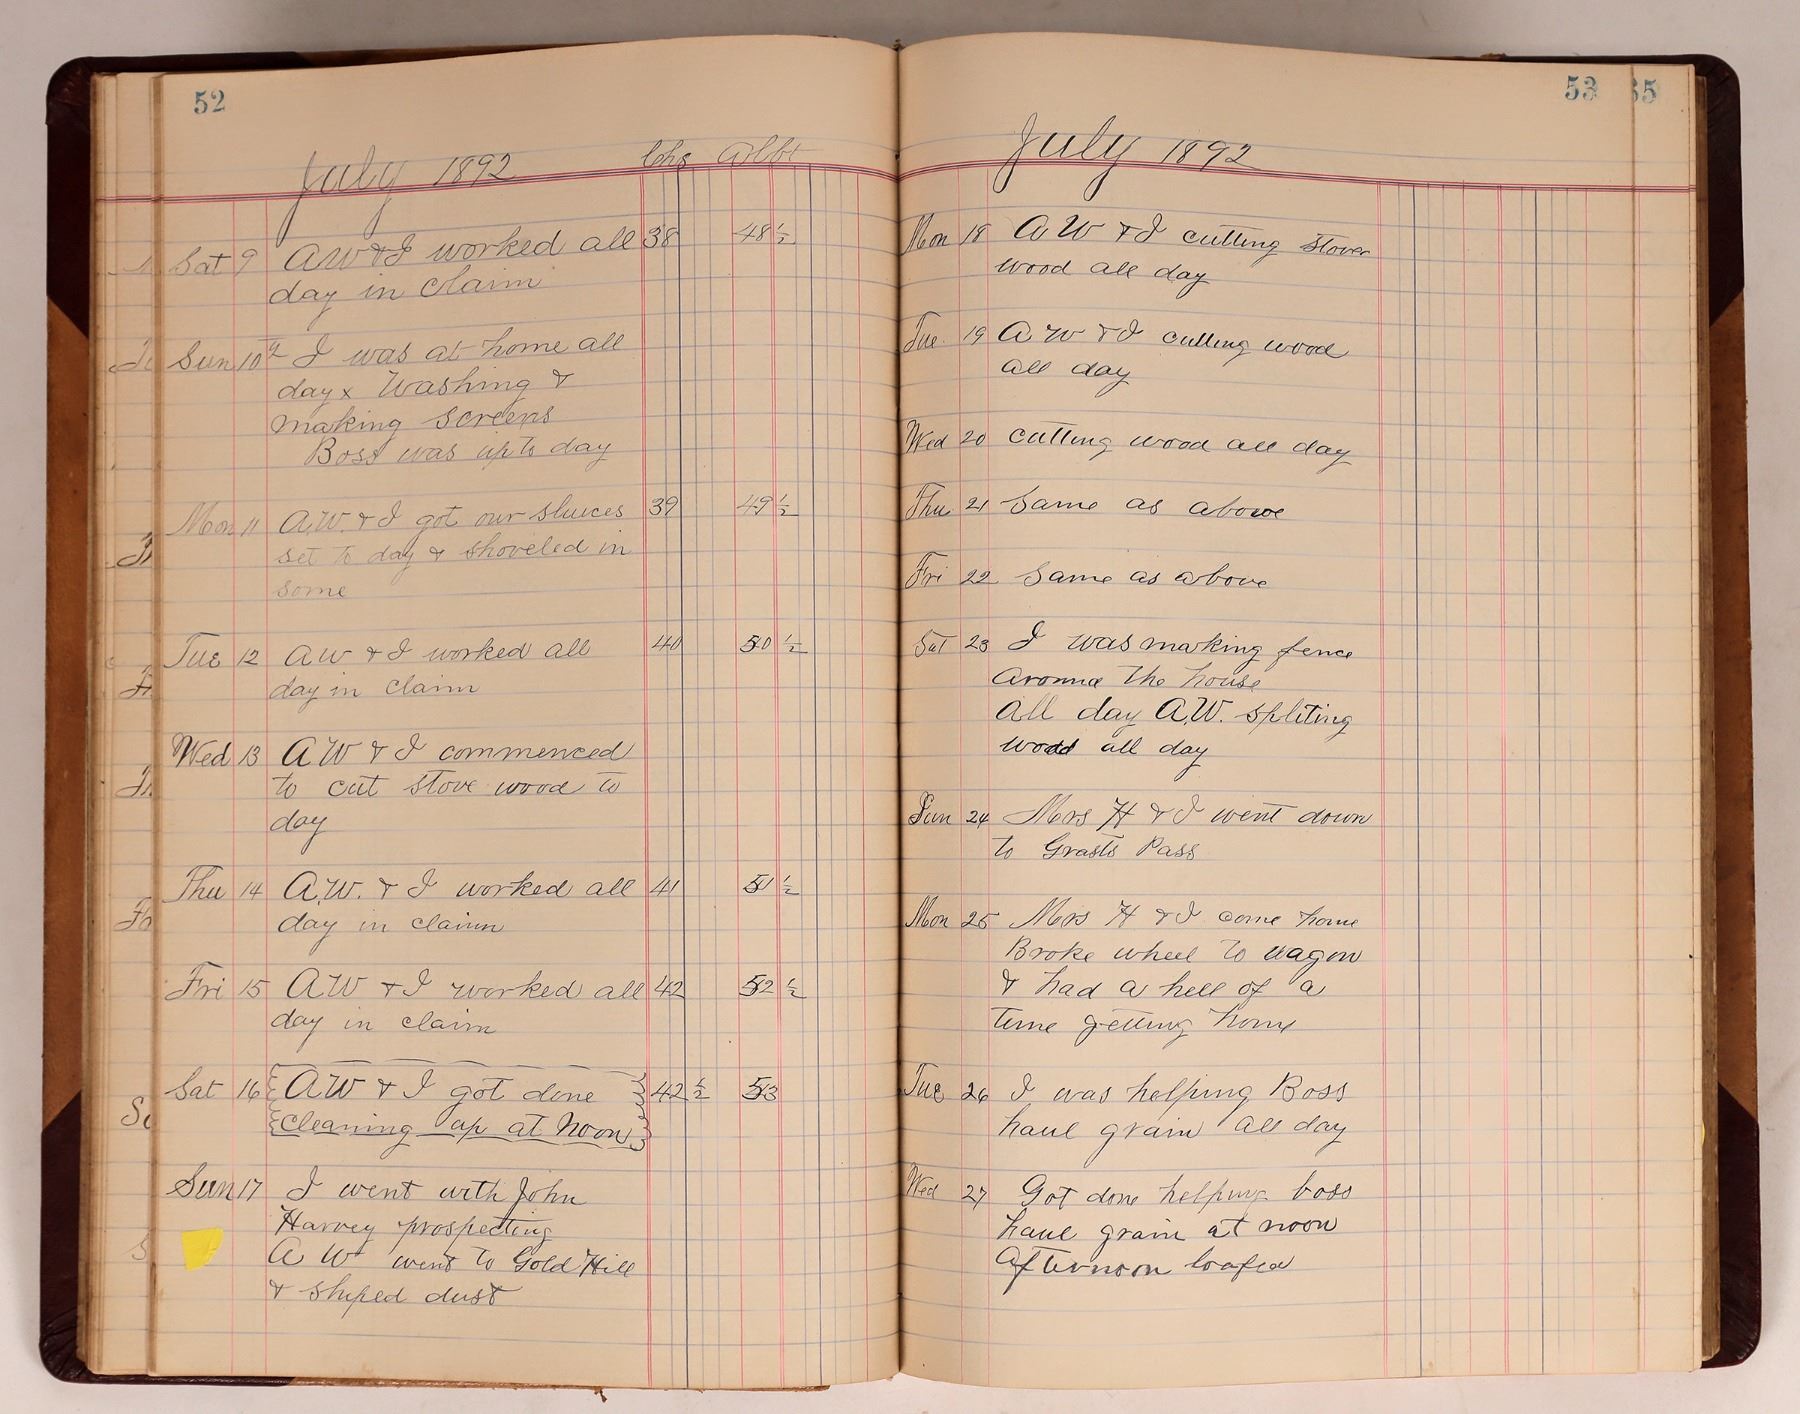 52
July 1892 Chs Albt
Sat 9 AW & I worked all 38 48 1/2
day in claim
Sun 10 I was at home all
day x Washing &
making screens
Boss was up to day
Mon 11 A.W. & I got our sluices 39 49 1/2
set to day & shoveled in
some
Tue 12 AW & I worked all 40 50 1/2
day in claim
Wed 13 AW & I commenced
to cut stove wood to
day
Thu 14 A.W. & I worked all 41 51 1/2
day in claim
Fri 15 AW & I worked all 42 52 1/2
day in claim
Sat 16 AW & I got done 42 1/2 53
cleaning up at Noon
Sun 17 I went with John
Harvey prospecting
A W went to Gold Hill
& shiped dust
53
55
July 1892
Mon 18 A W & I cutting stove
wood all day
Tue 19 A W & I cutting wood
all day
Wed 20 cutting wood all day
Thu 21 Same as above
Fri 22 Same as above
Sat 23 I was making fence
around the house
all day A.W. spliting
wood all day
Sun 24 Mrs H & I went down
to Grasts Pass
Mon 25 Mrs H & I come home
Broke wheel to wagon
& had a hell of a
time getting home
Tue 26 I was helping Boss
haul grain all day
Wed 27 Got done helping boss
haul grain at noon
afternoon loafed